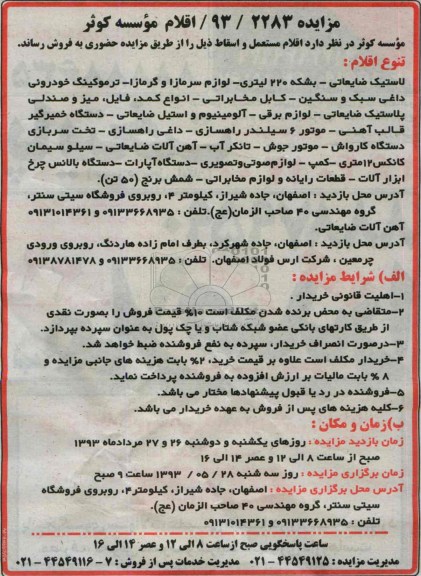 مزایده ۲۲۸۳ / ۹۳ / اقلام مؤسسه کوثر
مؤسسه کوثر در نظر دارد اقلام مستعمل و اسقاط ذیل را از طریق مزایده حضوری به فروش رساند.
تنوع اقلام :
لاستیک ضایعاتی - بشکه ۲۲۰ لیتری- لوازم سرمازا و گرمازا- ترموکینگ خودرویی
داغی سبک و سنگین - کابل مخابراتی - انواع کمد، فایل، میز و صندلی
پلاستیک ضایعاتی - لوازم برقی - آلومینیوم و استیل ضایعاتی - دستگاه خمیرگیر
قالب آهنی - موتور ۶ سیلندر راهسازی - داغی راهسازی - تخت سربازی
دستگاه کارواش - موتور جوش - تانکر آب - آهن آلات ضایعاتی - سیلو سیمان
کانکس۱۲متری -کمپ - لوازم‌صوتی‌وتصویری -دستگاه‌آپارات -دستگاه بالانس چرخ
ابزار آلات - قطعات رایانه و لوازم مخابراتی - شمش برنج (۵۰ تن).
آدرس محل بازدید : اصفهان، جاده شیراز، کیلومتر ۴، روبروی فروشگاه سیتی سنتر،
گروه مهندسی ۴۰ صاحب الزمان(عج).تلفن : ۰۹۱۳۳۶۶۸۹۳۵ و ۰۹۱۳۱۰۱۴۳۶۱
آهن آلات ضایعاتی.
آدرس محل بازدید : اصفهان، جاده شهرکرد، بطرف امام زاده هاردنگ، روبروی ورودی
چرمعین ، شرکت ارس فولاد اصفهان. تلفن : ۰۹۱۳۳۶۶۸۹۳۵ و ۰۹۱۳۸۷۸۱۴۷۸
الف) شرایط مزایده :
۱-اهلیت قانونی خریدار .
۲-متقاضی به محض برنده شدن مکلف است ۱۰% قیمت فروش را بصورت نقدی
از طریق کارتهای بانکی عضو شبکه شتاب و یا چک پول به عنوان سپرده بپردازد.
۳-درصورت انصراف خریدار، سپرده به نفع فروشنده ضبط خواهد شد.
۴-خریدار مکلف است علاوه بر قیمت خرید، ۲% بابت هزینه های جانبی مزایده و
۸ % بابت مالیات بر ارزش افزوده به فروشنده پرداخت نماید.
۵-فروشنده در رد یا قبول پیشنهادها مختار می باشد.
۶-کلیه هزینه های پس از فروش به عهده خریدار می باشد.
ب)زمان و مکان :
زمان بازدید مزایده : روزهای یکشنبه و دوشنبه ۲۶ و ۲۷ مردادماه ۱۳۹۳
صبح از ساعت ۸ الی ۱۲ و عصر ۱۴ الی ۱۶
زمان برگزاری مزایده : روز سه شنبه ۲۸ / ۰۵ / ۱۳۹۳ ساعت ۹ صبح
آدرس محل برگزاری مزایده : اصفهان، جاده شیراز، کیلومتر۴، روبروی فروشگاه
سیتی سنتر، گروه مهندسی ۴۰ صاحب الزمان (عج).
تلفن : ۰۹۱۳۳۶۶۸۹۳۵ و ۰۹۱۳۱۰۱۴۳۶۱
ساعت پاسخگویی صبح ازساعت ۸ الی ۱۲ و عصر ۱۴ الی ۱۶
مدیریت مزایده : ۴۴۵۴۹۱۲۵ -۰۲۱ مدیریت خدمات پس از فروش : ۷ - ۴۴۵۴۹۱۱۶ -۰۲۱